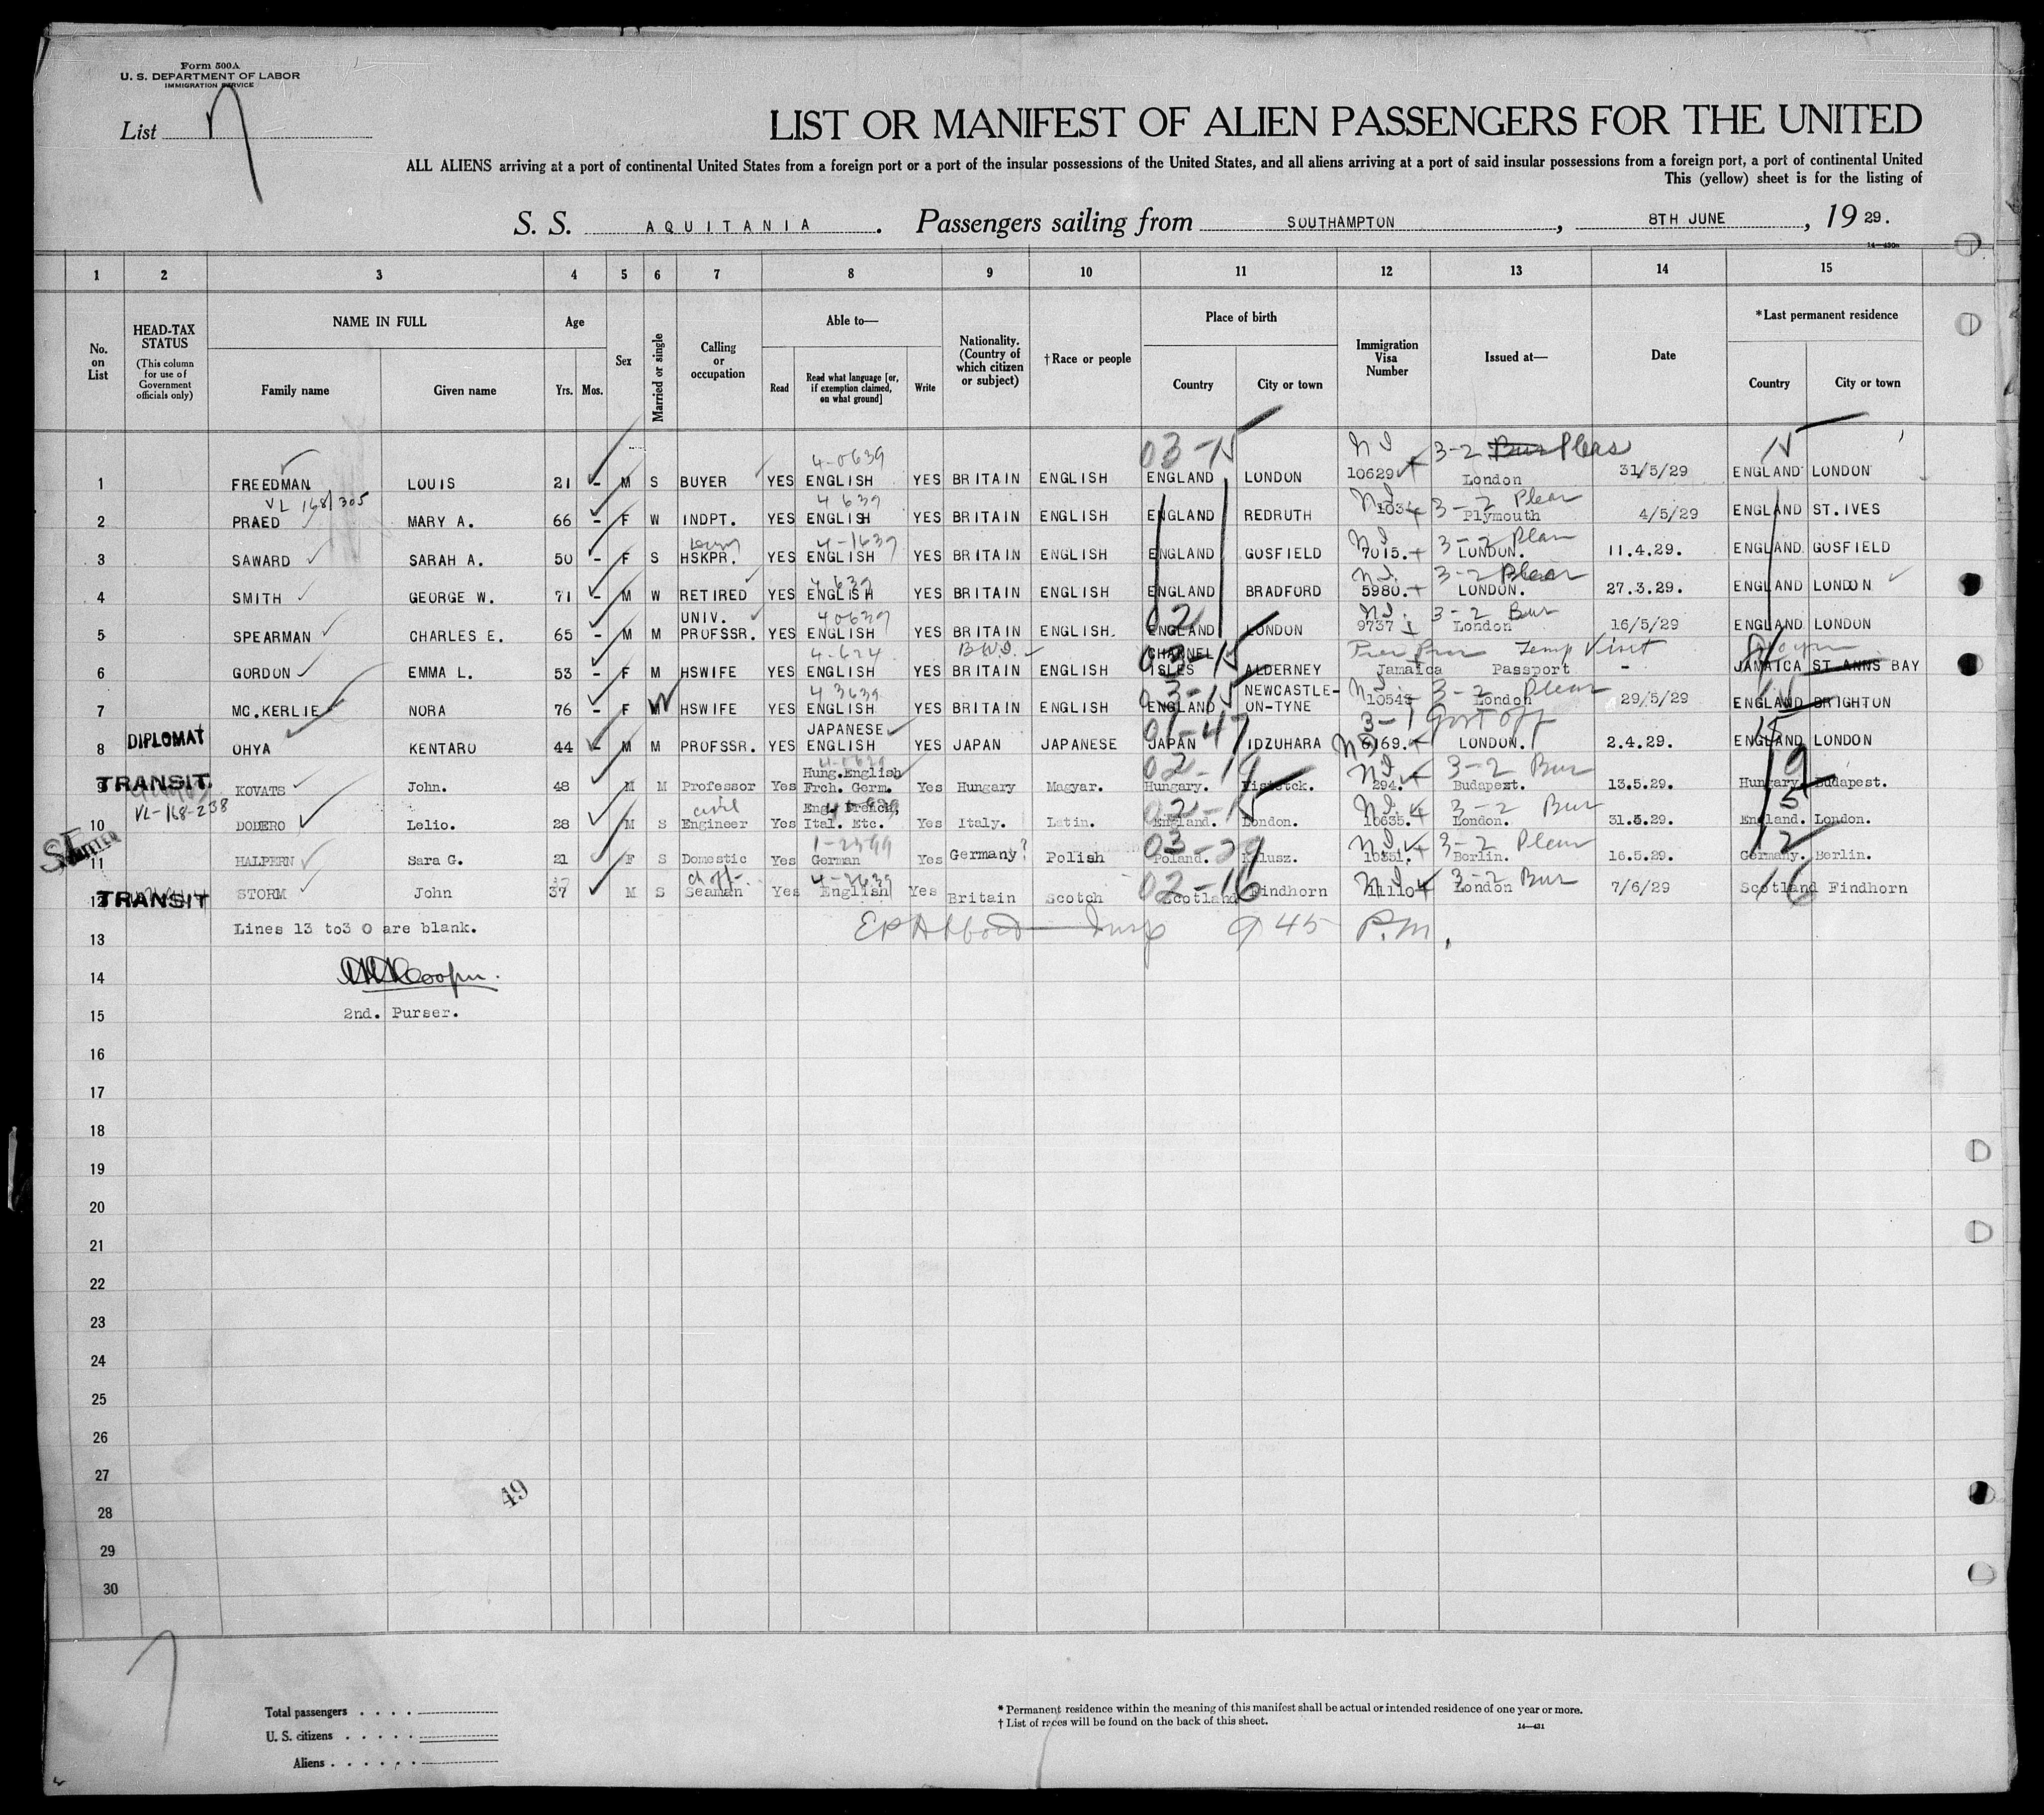 Form 500A
U. S. DEPARTMENT OF LABOR
IMMIGRATION SERVICE
List 7
LIST OR MANIFEST OF ALIEN PASSENGERS FOR THE UNITED
ALL ALIENS arriving at a port of continental United States from a foreign port or a port of the insular possessions of the United States, and all aliens arriving at a port of said insular possessions from a foreign port, a port of continental United
This (yellow) sheet is for the listing of
S. S. AQUITANIA. Passengers sailing from SOUTHAMPTON, 8TH JUNE, 19 29.
1 2 3 4 5 6 7 8 9 10 11 12 13 14 15
No. on List
HEAD-TAX STATUS
(This column for use of Government officials only)
NAME IN FULL
Family name Given name
Age
Yrs. Mos.
Sex
Married or single
Calling or occupation
Able to—
Read
Read what language [or, if exemption claimed, on what ground]
Write
Nationality. (Country of which citizen or subject)
†Race or people
Place of birth
Country City or town
Immigration Visa Number
Issued at—
Date
*Last permanent residence
Country City or town
03-15 3-2 Bur Pleas 15
4-0639
1 FREEDMAN LOUIS 21 - M S BUYER YES ENGLISH YES BRITAIN ENGLISH ENGLAND LONDON 10629 London 31/5/29 ENGLAND LONDON
VL 168/305 4 639 3-2
2 PRAED MARY A. 66 - F W INDPT. YES ENGLISH YES BRITAIN ENGLISH ENGLAND REDRUTH Plymouth 4/5/29 ENGLAND ST.IVES
4-1639 3-2
3 SAWARD SARAH A. 50 - F S HSKPR. YES ENGLISH YES BRITAIN ENGLISH ENGLAND GOSFIELD 7015. LONDON. 11.4.29. ENGLAND GOSFIELD
4 639 3-2
4 SMITH GEORGE W. 71 - M W RETIRED YES ENGLISH YES BRITAIN ENGLISH ENGLAND BRADFORD 5980. LONDON. 27.3.29. ENGLAND LONDON
40639 02 3-2 Bur
5 SPEARMAN CHARLES E. 65 - M M UNIV. PROFSSR. YES ENGLISH YES BRITAIN ENGLISH. ENGLAND LONDON 9737 London 16/5/29 ENGLAND LONDON
4-624 B.W.I. 03-15 Temp Visit
6 GORDON EMMA L. 53 - F M HSWIFE YES ENGLISH YES BRITAIN ENGLISH CHANNEL ISLES ALDERNEY Jamaica Passport - JAMAICA ST ANNS BAY
4 3639 03-15 3-2
7 MC.KERLIE NORA 76 - F W HSWIFE YES ENGLISH YES BRITAIN ENGLISH ENGLAND NEWCASTLE-ON-TYNE London 29/5/29 ENGLAND BRIGHTON
01-47 3-1 Govt Off 15
DIPLOMAT
8 OHYA KENTARO 44 - M M PROFSSR. YES JAPANESE ENGLISH YES JAPAN JAPANESE JAPAN IDZUHARA 6169. LONDON. 2.4.29. ENGLAND LONDON
02-19 3-2 Bur 9
TRANSIT.
9 KOVATS John. 48 M M Professor Yes Hung.English Frch. Germ. Yes Hungary Magyar. Hungary. 294. Budapest. 13.5.29. Hungary. Budapest.
VL-168-238 Civil 02-15 3-2 Bur 5
10 DODERO Lelio. 28 M S Engineer Yes Eng. French, Ital. Etc. Yes Italy. Latin. England. London. 10635. London. 31.5.29. England. London.
03-29 3-2 12
11 HALPERN Sara G. 21 F S Domestic Yes German Yes Germany? Polish Poland. Berlin. 16.5.29. Germany. Berlin.
4-3639 02-16 3-2 Bur 16
TRANSIT
12 STORM John 37 M S Seaman Yes English Yes Britain Scotch Scotland Findhorn 11110 London 7/6/29 Scotland Findhorn
13 Lines 13 to3 0 are blank. Insp 9 45 P.M.
14 Cooper.
15 2nd. Purser.
16
17
18
19
20
21
22
23
24
25
26
27
49
28
29
30
7
Total passengers
U. S. citizens
Aliens
* Permanent residence within the meaning of this manifest shall be actual or intended residence of one year or more.
† List of races will be found on the back of this sheet.
14—431